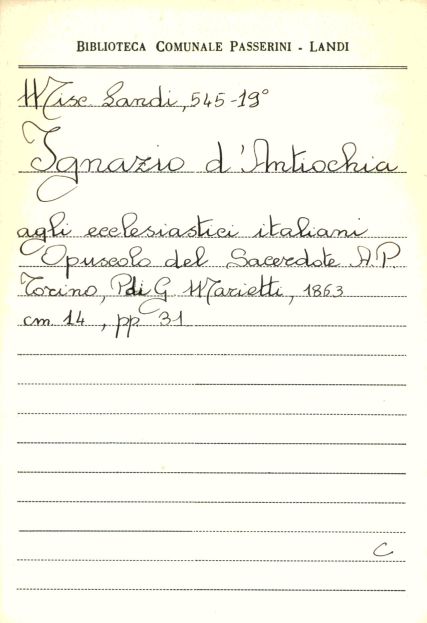 BIBLIOTECA COMUNALE PASSERINI - LANDI
Misc Landi, 545-19°
Ignazio d'Antiochia
agli ecclesiastici italiani
Opuscolo del Sacerdote A.P.
Torino, P di G Marietti, 1863
cm. 14, pp 31
C